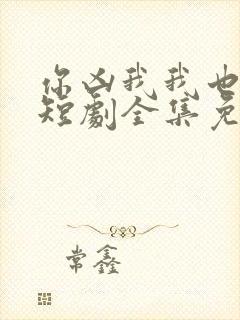 你凶我我也
短劇全集免
常鑫